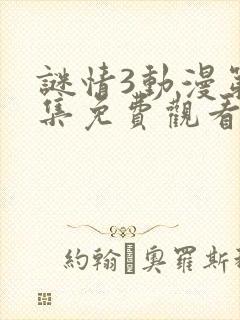 謎情3動漫第
集免費觀看
約翰·奧羅斯科